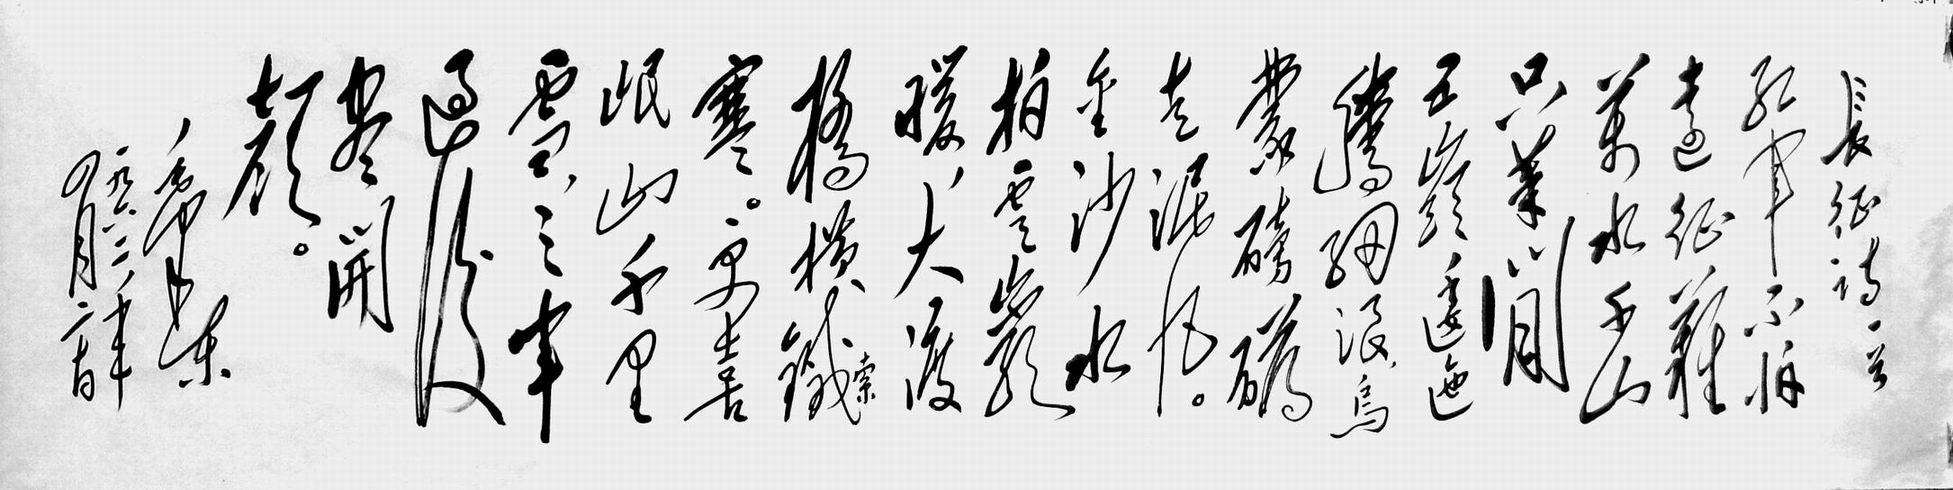 長征詩一首
紅軍不怕
遠征難
萬水千山
只等閒
五嶺逶迤
騰細浪，烏
蒙磅礴
走泥丸。
金沙水
拍雲巖
暖，大渡
橋橫鐵索
寒。更喜
岷山千里
雪，三軍
過後
盡開
顏。
毛澤東
一九六二年
四月二十日